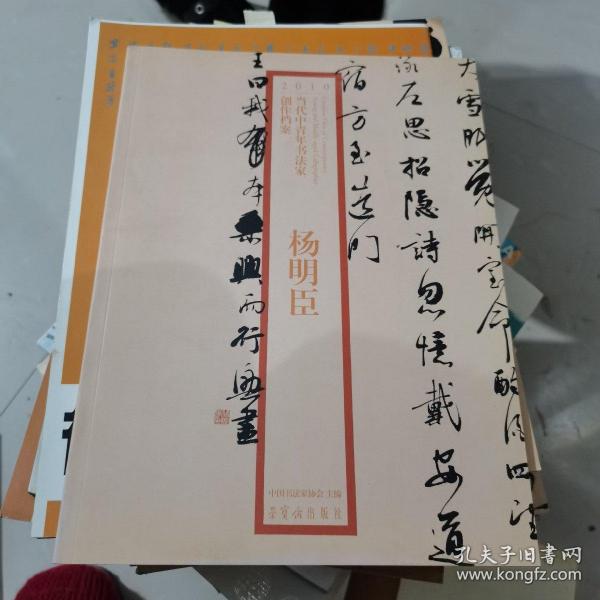 大雪眠觉開室命酌酒四望
詠左思招隐詩忽憶戴安道
宿方至造門
王曰我本乘興而行興盡
2010
当代中青年书法家
创作档案
杨明臣
中国书法家协会 主编
荣宝斋出版社
孔夫子旧书网
www.kongfz.com